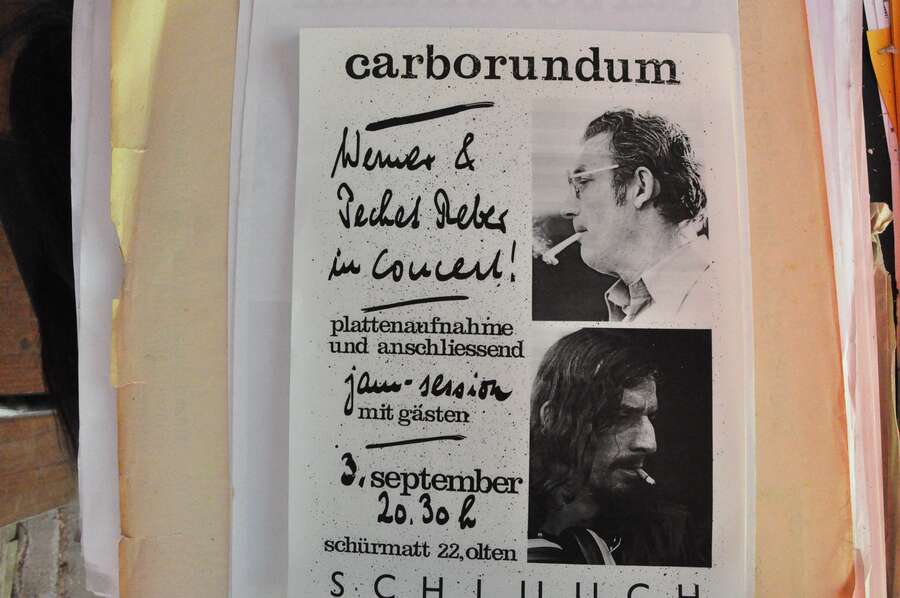 carborundum
Werner &
Pechel Reber
in concert!
plattenaufnahme
und anschliessend
jam-session
mit gästen
3. september
20.30 h
schürmatt 22, olten